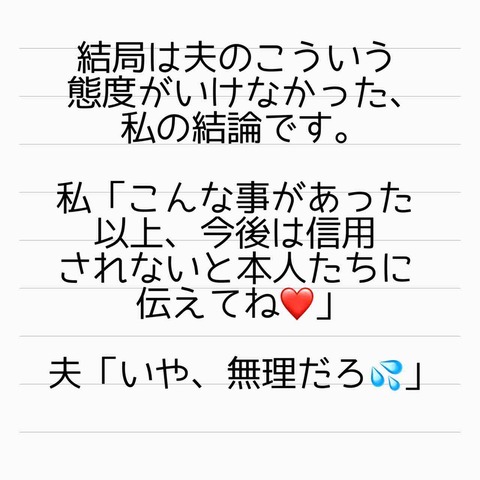 結局は夫のこういう
態度がいけなかった、
私の結論です。
私「こんな事があった
以上、今後は信用
されないと本人たちに
伝えてね❤️」
夫「いや、無理だろ💦」